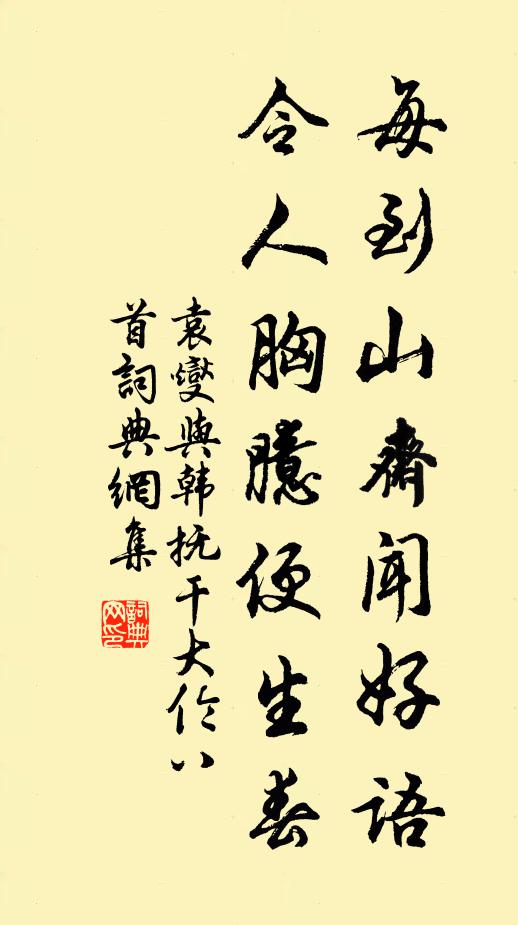 每到山齋聞好語
令人胸臆便生春
袁燮與韩抚干大伦八
首詞典網集
詞典
网印